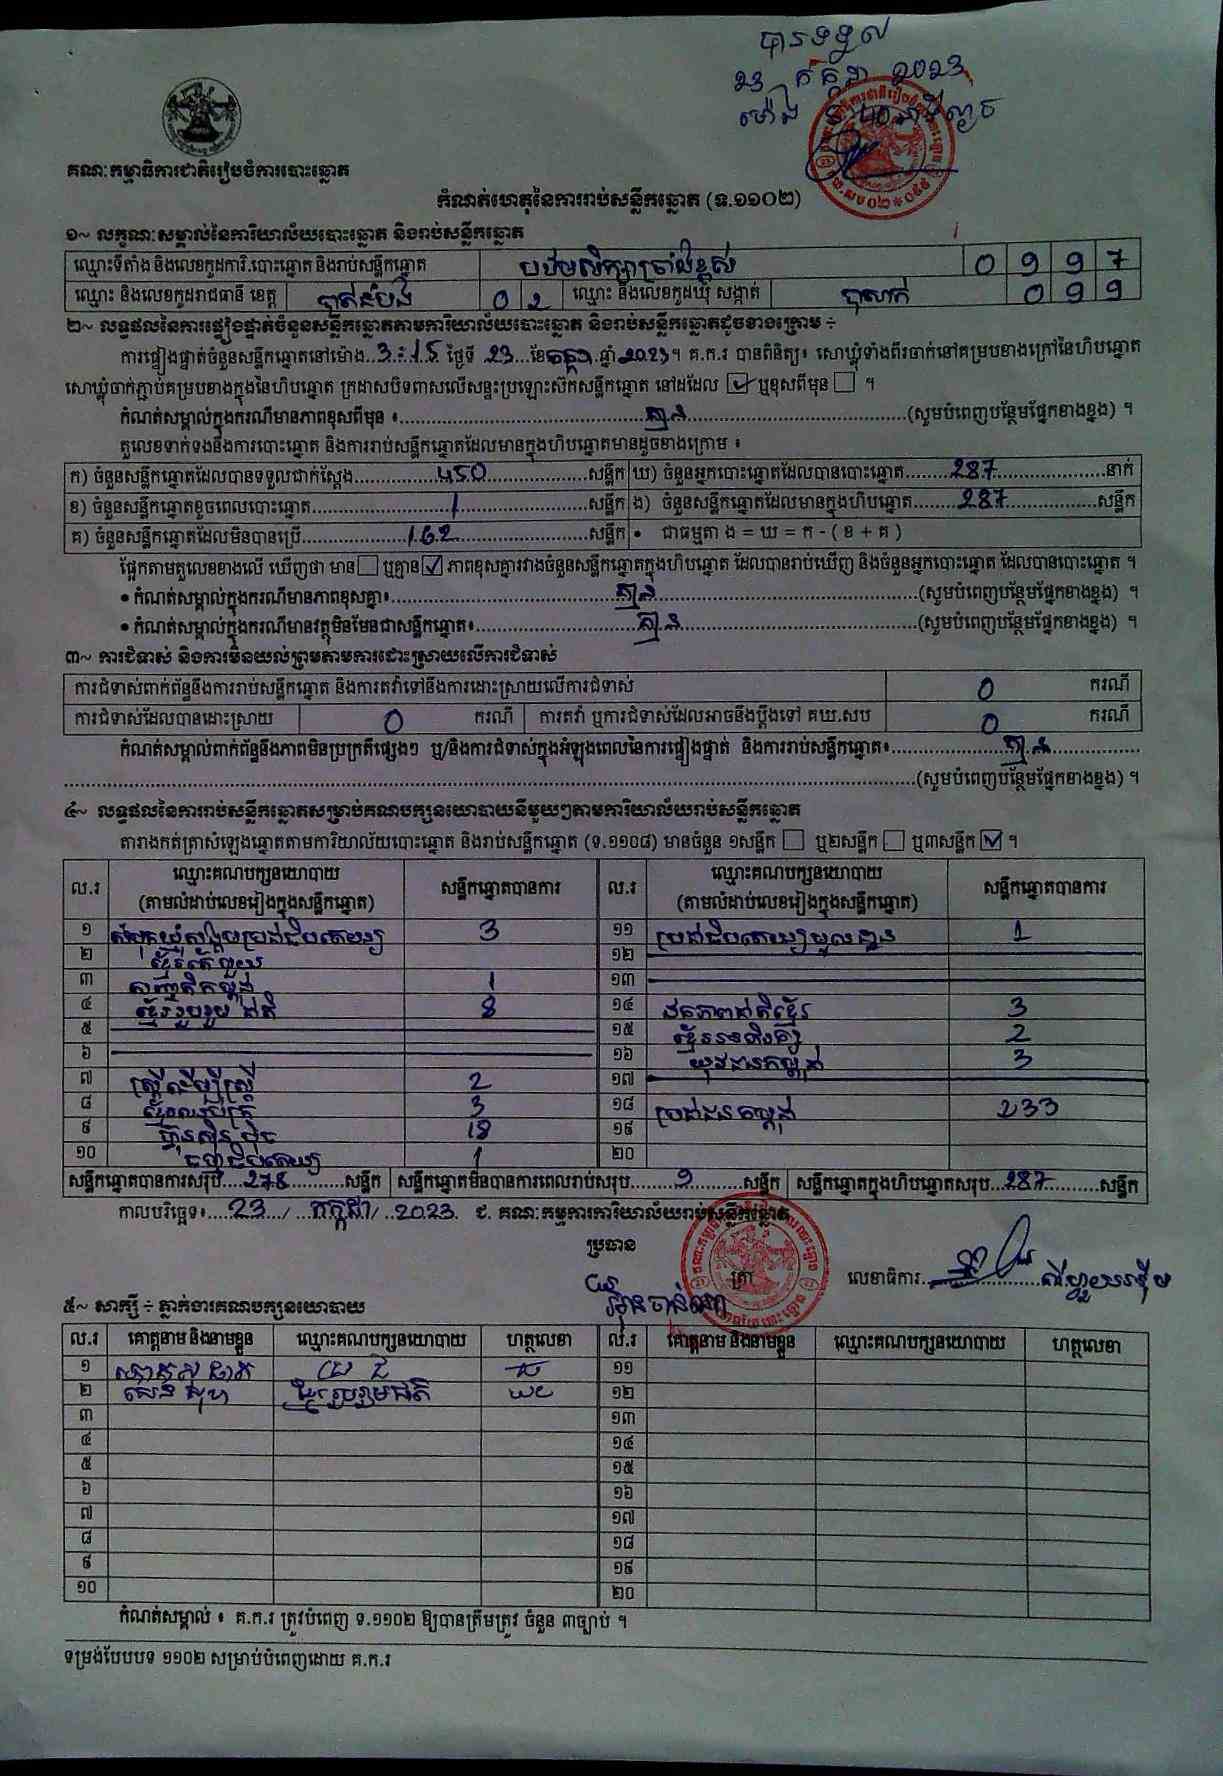 បានទទួល
23 កក្កដា 2023
ម៉ោង
គណៈកម្មាធិការជាតិរៀបចំការបោះឆ្នោត
កំណត់ហេតុនៃការរាប់សន្លឹកឆ្នោត (ទ.១១០២)
១~ លក្ខណៈសម្គាល់នៃការិយាល័យបោះឆ្នោត និងរាប់សន្លឹកឆ្នោត
ឈ្មោះទីតាំង និងលេខកូដការិ.បោះឆ្នោត និងរាប់សន្លឹកឆ្នោត 0 9 9 7
ឈ្មោះ និងលេខកូដរាជធានី ខេត្ត បាត់ដំបង 0 2 ឈ្មោះ និងលេខកូដឃុំ សង្កាត់ បាសាក់ 0 9 9
២~ លទ្ធផលនៃការផ្ទៀងផ្ទាត់ចំនួនសន្លឹកឆ្នោតតាមការិយាល័យបោះឆ្នោត និងរាប់សន្លឹកឆ្នោតដូចខាងក្រោម ÷
ការផ្ទៀងផ្ទាត់ចំនួនសន្លឹកឆ្នោតនៅម៉ោង 3:15 ថ្ងៃទី 23 ខែកក្កដា ឆ្នាំ 2023 ។ គ.ក.រ បានពិនិត្យ៖ សោឃ្លុំទាំងពីរចាក់នៅគម្របខាងក្រៅនៃហិបឆ្នោត
សោឃ្លុំចាក់ភ្ជាប់គម្របខាងក្នុងនៃហិបឆ្នោត ក្រដាសបិទពាសលើសន្ទះប្រឡោះស៊កសន្លឹកឆ្នោត នៅដដែល ☑ ឬខុសពីមុន ☐ ។
កំណត់សម្គាល់ក្នុងករណីមានភាពខុសពីមុន ៖ គ្មាន (សូមបំពេញបន្ថែមផ្នែកខាងខ្នង) ។
តួលេខទាក់ទងនឹងការបោះឆ្នោត និងការរាប់សន្លឹកឆ្នោតដែលមានក្នុងហិបឆ្នោតមានដូចខាងក្រោម ៖
ក) ចំនួនសន្លឹកឆ្នោតដែលបានទទួលជាក់ស្តែង 450 សន្លឹក ឃ) ចំនួនអ្នកបោះឆ្នោតដែលបានបោះឆ្នោត 287 នាក់
ខ) ចំនួនសន្លឹកឆ្នោតខូចពេលបោះឆ្នោត 1 សន្លឹក ង) ចំនួនសន្លឹកឆ្នោតដែលមានក្នុងហិបឆ្នោត 287 សន្លឹក
គ) ចំនួនសន្លឹកឆ្នោតដែលមិនបានប្រើ 162 សន្លឹក • ជាធម្មតា ង = ឃ = ក - ( ខ + គ )
ផ្អែកតាមតួលេខខាងលើ ឃើញថា មាន ☐ ឬគ្មាន ☑ ភាពខុសគ្នារវាងចំនួនសន្លឹកឆ្នោតក្នុងហិបឆ្នោត ដែលបានរាប់ឃើញ និងចំនួនអ្នកបោះឆ្នោត ដែលបានបោះឆ្នោត ។
• កំណត់សម្គាល់ក្នុងករណីមានភាពខុសគ្នា៖ គ្មាន (សូមបំពេញបន្ថែមផ្នែកខាងខ្នង) ។
• កំណត់សម្គាល់ក្នុងករណីមានវត្ថុមិនមែនជាសន្លឹកឆ្នោត៖ គ្មាន (សូមបំពេញបន្ថែមផ្នែកខាងខ្នង) ។
៣~ ការជំទាស់ និងការមិនយល់ព្រមតាមការដោះស្រាយលើការជំទាស់
ការជំទាស់ពាក់ព័ន្ធនឹងការរាប់សន្លឹកឆ្នោត និងការតវ៉ាទៅនឹងការដោះស្រាយលើការជំទាស់ 0 ករណី
ការជំទាស់ដែលបានដោះស្រាយ 0 ករណី ការតវ៉ា ឬការជំទាស់ដែលអាចនឹងប្តឹងទៅ គឃ.សប 0 ករណី
កំណត់សម្គាល់ពាក់ព័ន្ធនឹងភាពមិនប្រក្រតីផ្សេងៗ ឬ/និងការជំទាស់ក្នុងអំឡុងពេលនៃការផ្ទៀងផ្ទាត់ និងការរាប់សន្លឹកឆ្នោត៖ គ្មាន
(សូមបំពេញបន្ថែមផ្នែកខាងខ្នង) ។
៤~ លទ្ធផលនៃការរាប់សន្លឹកឆ្នោតសម្រាប់គណបក្សនយោបាយនីមួយៗតាមការិយាល័យរាប់សន្លឹកឆ្នោត
តារាងកត់ត្រាសំឡេងឆ្នោតតាមការិយាល័យបោះឆ្នោត និងរាប់សន្លឹកឆ្នោត (ទ.១១០៨) មានចំនួន ១សន្លឹក ☐ ឬ២សន្លឹក ☐ ឬ៣សន្លឹក ☑ ។
ល.រ ឈ្មោះគណបក្សនយោបាយ (តាមលំដាប់លេខរៀងក្នុងសន្លឹកឆ្នោត) សន្លឹកឆ្នោតបានការ ល.រ ឈ្មោះគណបក្សនយោបាយ (តាមលំដាប់លេខរៀងក្នុងសន្លឹកឆ្នោត) សន្លឹកឆ្នោតបានការ
១ សំបុកឃ្មុំសង្គមប្រជាធិបតេយ្យ 3 ១១ 1
២ ខ្មែរតែមួយ ១២
៣ 1 ១៣
៤ ខ្មែររួបរួមជាតិ 8 ១៤ ឯកភាពជាតិខ្មែរ 3
៥ ១៥ 2
៦ ១៦ យុវជនកម្ពុជា 3
៧ ស្ត្រីដើម្បីស្ត្រី 2 ១៧
៨ 3 ១៨ ប្រជាជនកម្ពុជា 233
៩ ហ៊្វុនស៊ិនប៉ិច 18 ១៩
១០ 1 ២០
សន្លឹកឆ្នោតបានការសរុប 278 សន្លឹក សន្លឹកឆ្នោតមិនបានការពេលរាប់សរុប 9 សន្លឹក សន្លឹកឆ្នោតក្នុងហិបឆ្នោតសរុប 287 សន្លឹក
កាលបរិច្ឆេទ៖ 23 / កក្កដា / 2023 ជ. គណៈកម្មការការិយាល័យរាប់សន្លឹកឆ្នោត
ប្រធាន
ត្រា លេខាធិការ
៥~ សាក្សី ÷ ភ្នាក់ងារគណបក្សនយោបាយ
ល.រ គោត្តនាម និងនាមខ្លួន ឈ្មោះគណបក្សនយោបាយ ហត្ថលេខា ល.រ គោត្តនាម និងនាមខ្លួន ឈ្មោះគណបក្សនយោបាយ ហត្ថលេខា
១ ១១
២ ខ្មែររួបរួមជាតិ ១២
៣ ១៣
៤ ១៤
៥ ១៥
៦ ១៦
៧ ១៧
៨ ១៨
៩ ១៩
១០ ២០
កំណត់សម្គាល់ ៖ គ.ក.រ ត្រូវបំពេញ ទ.១១០២ ឱ្យបានត្រឹមត្រូវ ចំនួន ៣ច្បាប់ ។
ទម្រង់បែបបទ ១១០២ សម្រាប់បំពេញដោយ គ.ក.រ